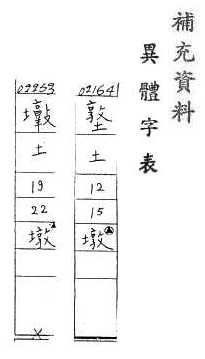 補充資料
異體字表
02164
墪
土
12
15
墩
02253
土
19
22
墩